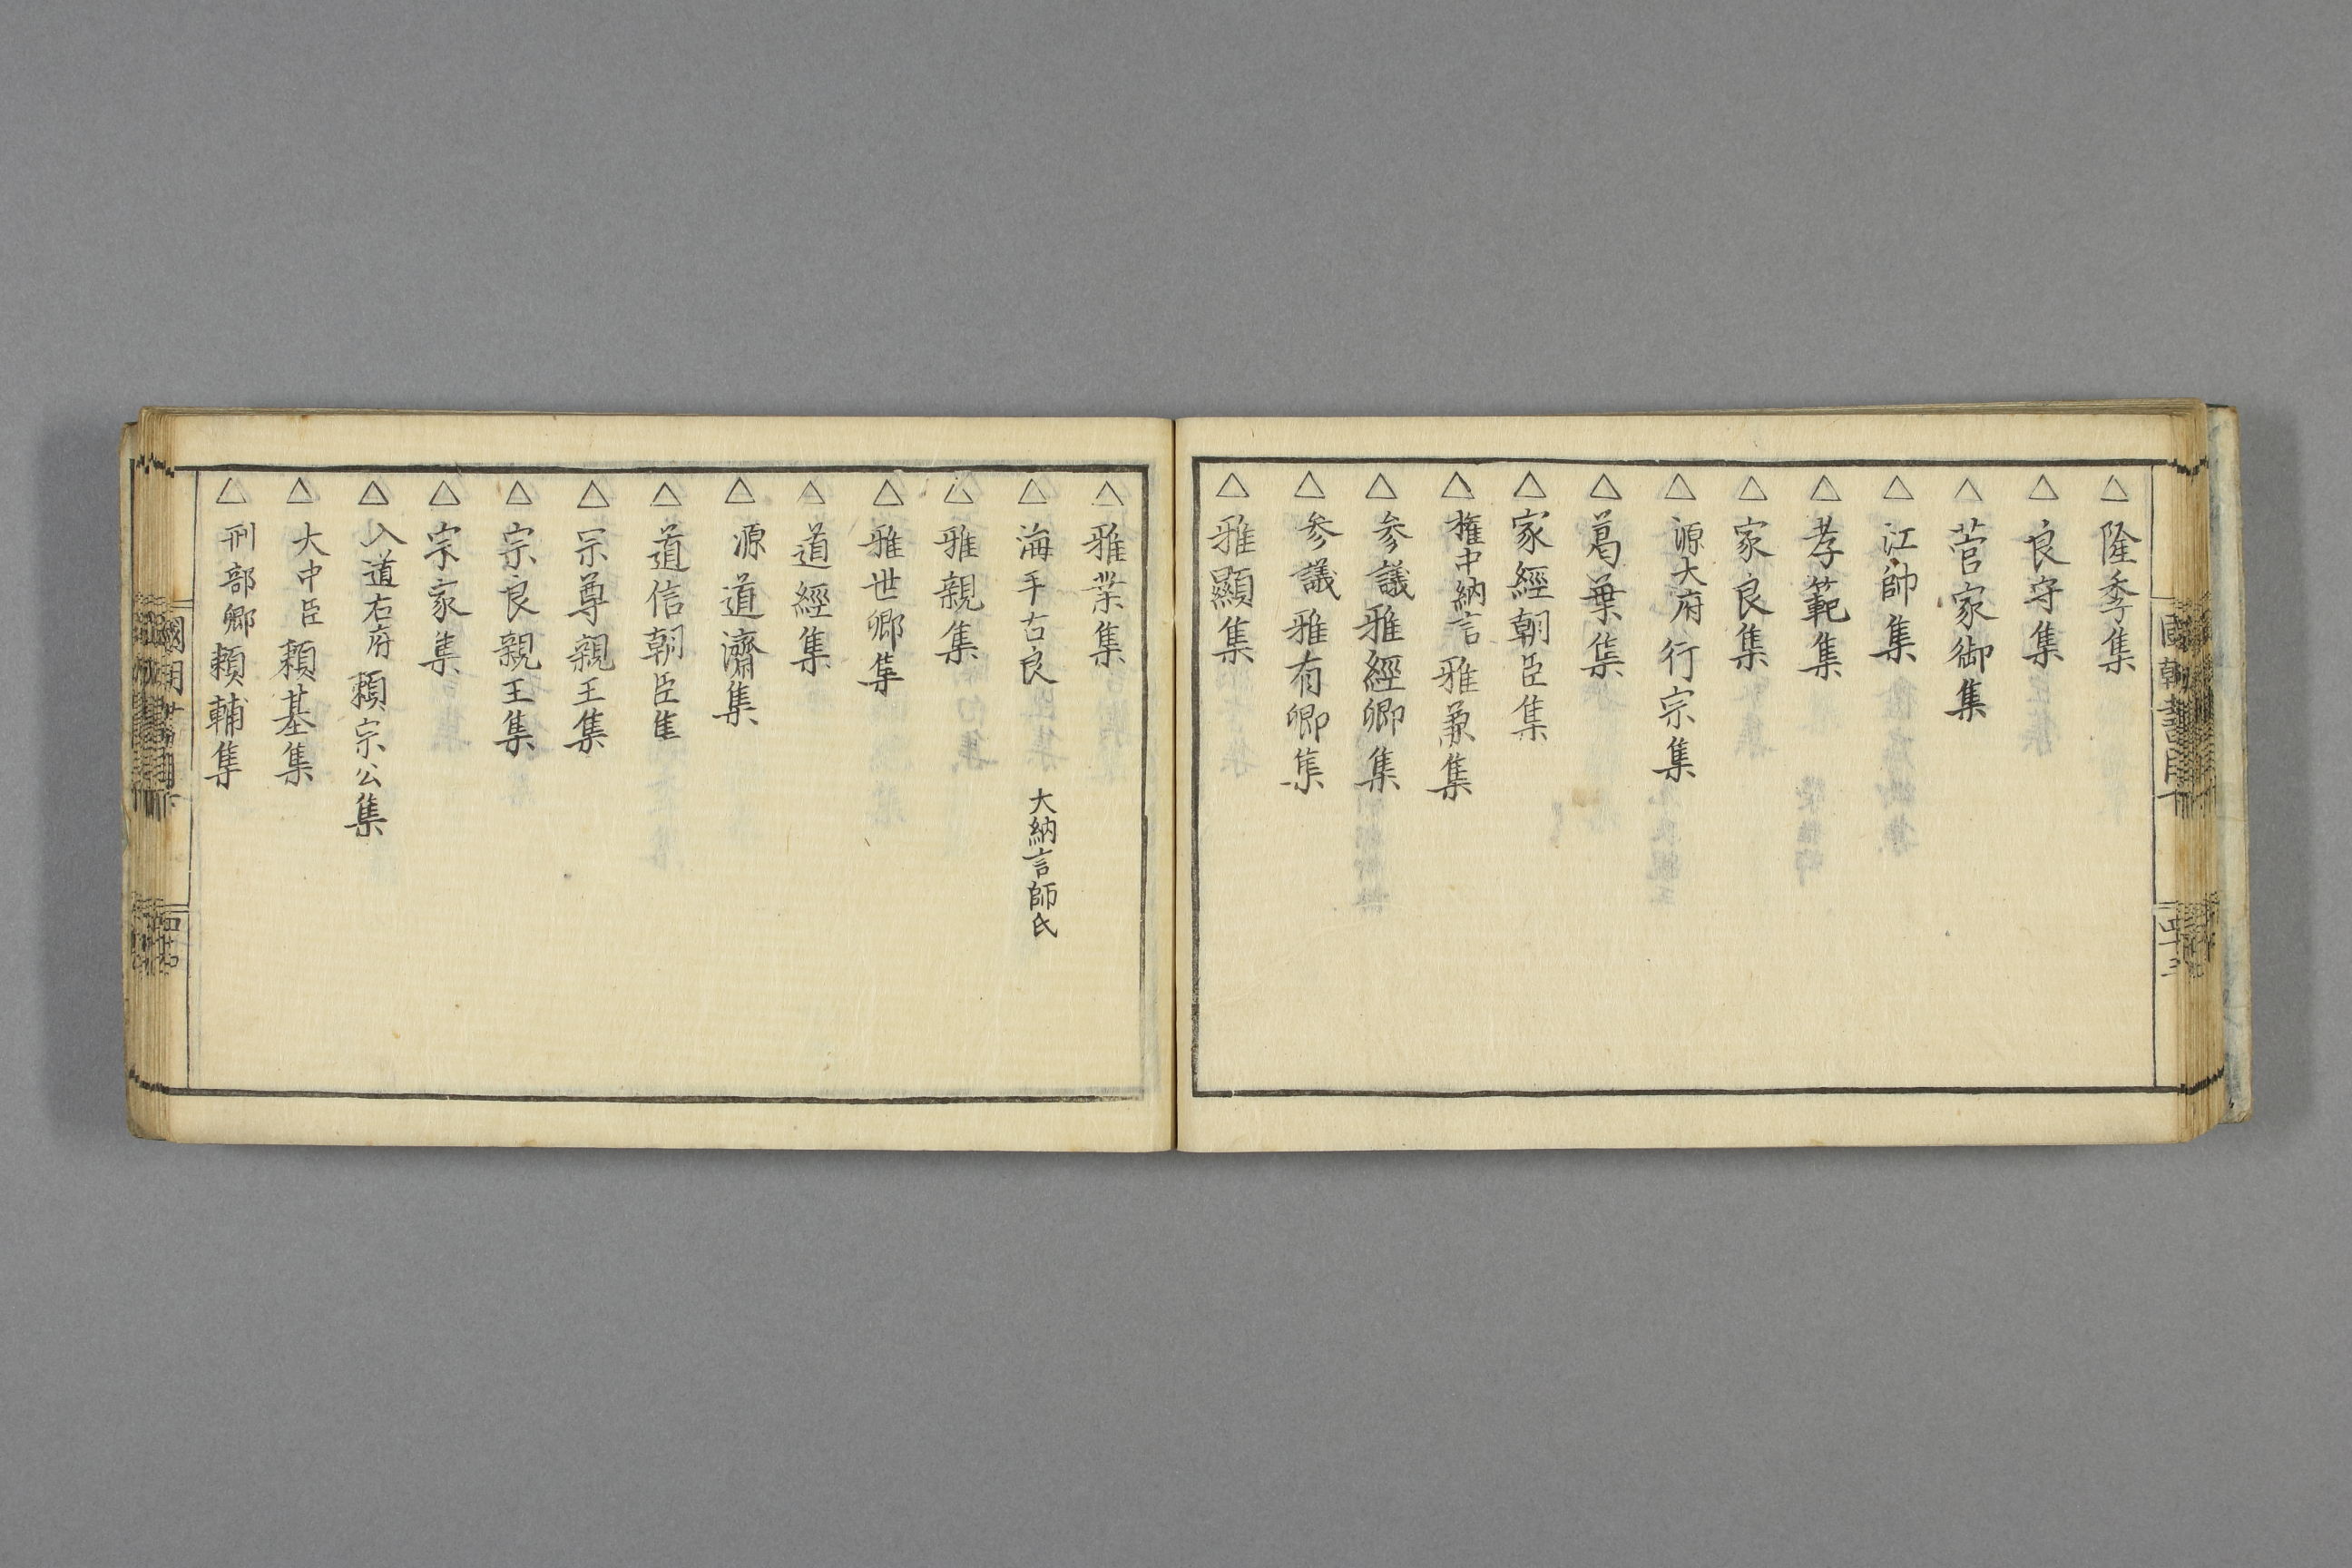 △隆季集
△良守集
△菅家御集
△江帥集
△孝範集
△家良集
△源大府行宗集
△葛葉集
△家經朝臣集
△権中納言雅兼集
△参議雅經卿集
△参議雅有卿集
△雅顯集
△雅業集
△海手古良集 大納言師氏
△雅親集
△雅世卿集
△道經集
△源道濟集
△道信朝臣集
△宗尊親王集
△宗良親王集
△宗家集
△入道右府頼宗公集
△大中臣頼基集
△刑部卿頼輔集